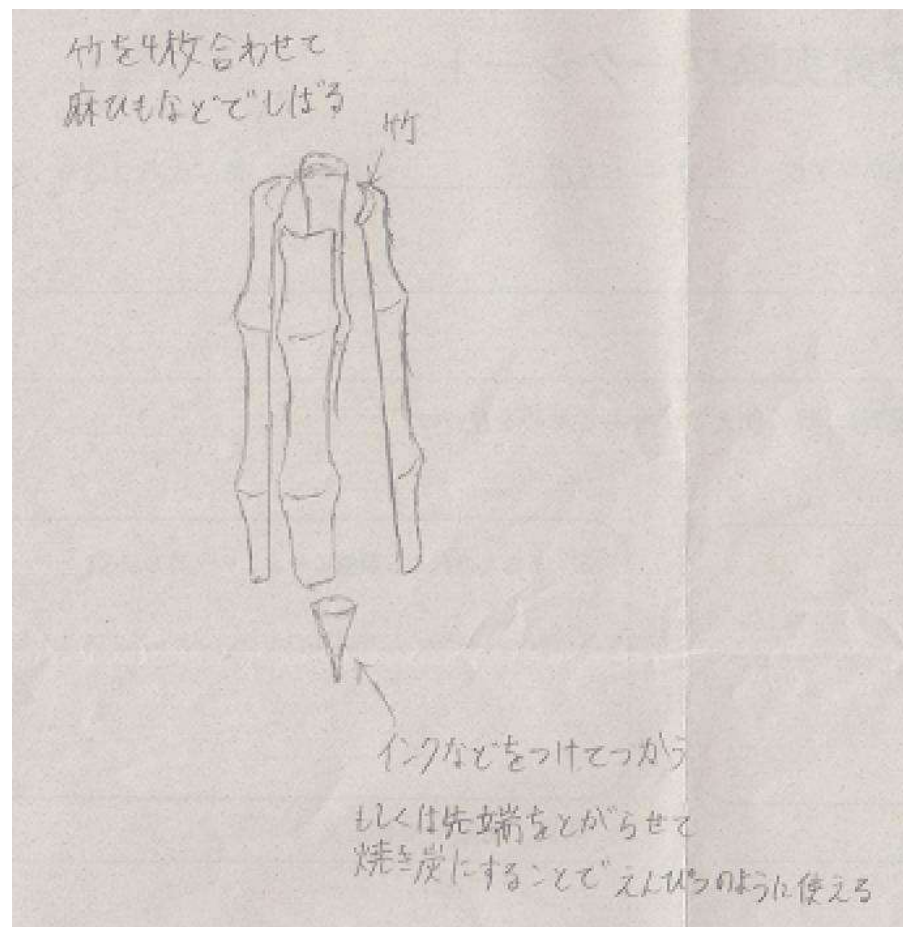 竹を4枚合わせて
麻ひもなどでしばる
竹
インクなどをつけてつかう
もしくは先端をとがらせて
焼き炭にすることでえんぴつのように使える